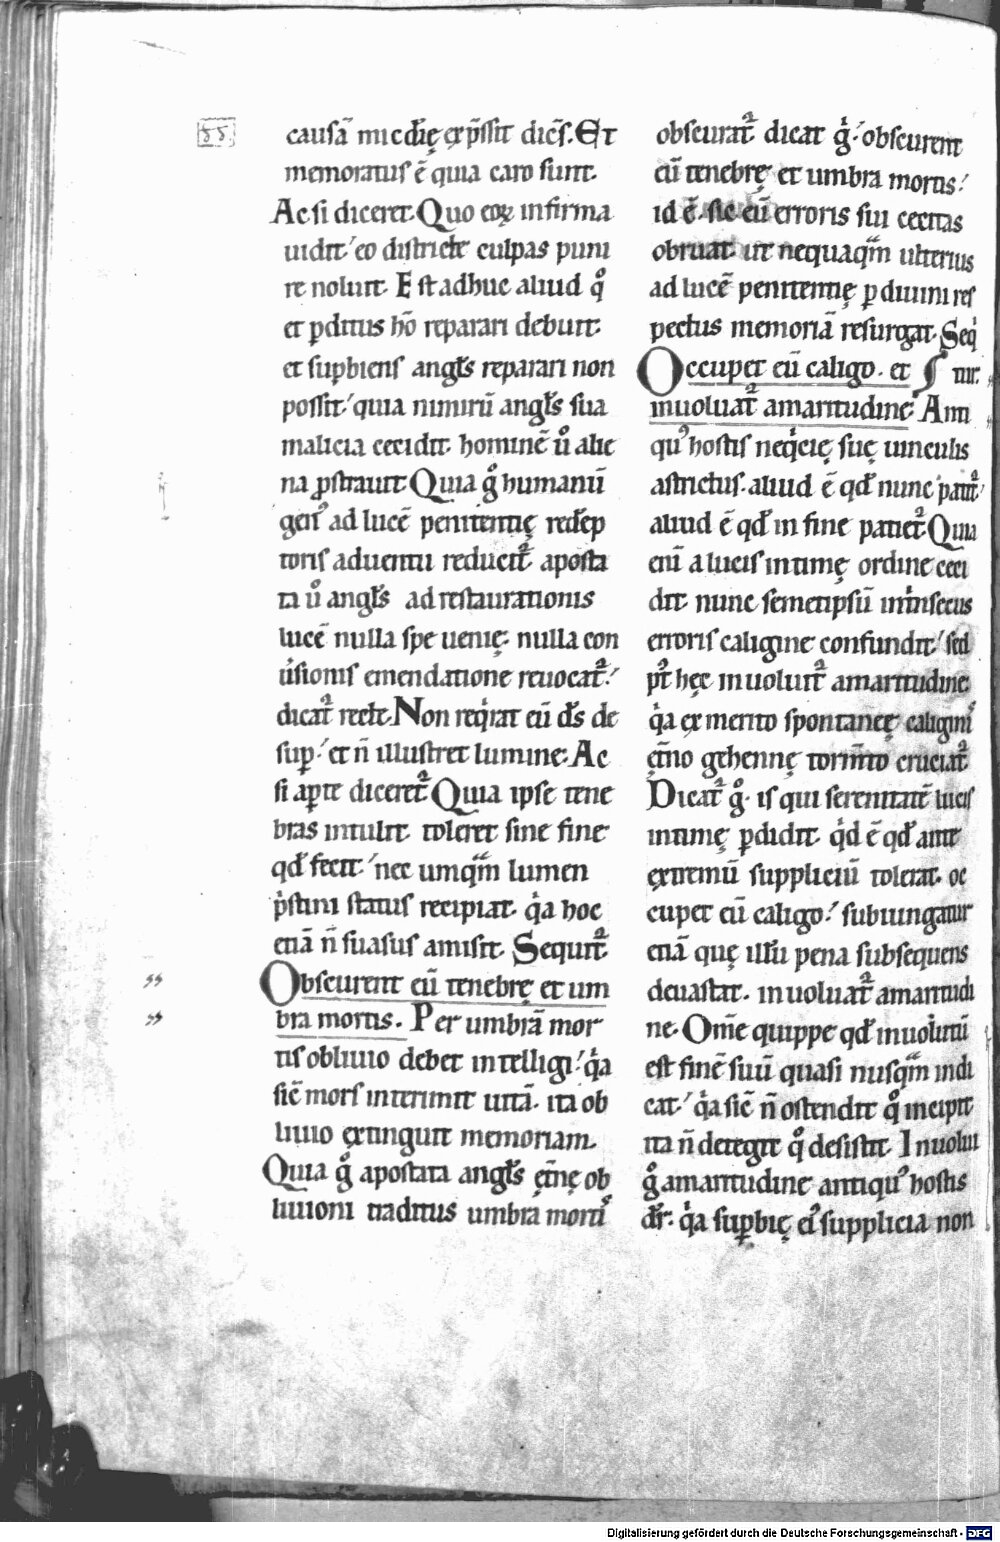 55.
causā mictͥdię exp̄ssit dicēs. Et
memoratus ē quia caro sunt.
Ac si diceret. Quo eoꝝ infirma
uidit. eo districte culpas puni
re noluit. Est adhuc aliud qͦ
et ꝑditus hō reparari debuit.
et suꝑbiens angl̄s reparari non
possit. quia nimirū angl̄s sua
malicia cecidit. hominē ů alie
na ꝓstrauit. Quia gͦ humanū
genꝰ ad lucē penitentię redēp
toris aduentu reducit᷑. aposta
ta ů angl̄s ad restaurationis
lucē nulla spe uenię. nulla con
ůsionis emendatione reuocat᷑.
dicat᷑ recte. Non reqͥrat eū ds̄ de
suꝑ. et n̄ illustret lumine. Ac
si aꝑte diceret᷑. Quia ipse tene
bras intulit. toleret sine fine
qd̄ fecit. nec umqͣm lumen
pͥstini status recipiat. qͥa hoc
etiā n̄ suasus amisit. Sequit᷑.
Obscurent eū tenebrę et um
bra mortis. Per umbrā mor
tis obliuio debet intelligi. qͥa
sic̄ mors interimit uitā. ita ob
liuio extinguit memoriam.
Quia gͦ apostata angl̄s et̄nę ob
liuioni traditus umbra mortiꝰ
obscurat᷑. dicat gͦ. obscurent
eū tenebrę et umbra mortis.
id ē. sic eū erroris sui cecitas
obruat. ut nequaqͣm ulterius
ad lucē penitentię ꝑ diuini res
pectus memoriā resurgat. Seqͥ
Occupet eū caligo. et ſ nr̄.
inuoluat᷑ amaritudine. Anti
quꝰ hostis neqͥcię suę uinculis
astrictus. aliud ē qd̄ nunc patit᷑.
aliud ē qd̄ in fine patiet᷑. Quia
eni a lucis intimę ordine ceci
dit. nunc semetipsū intͥnsecus
erroris caligine confundit. sed
pꝰt hęc inuoluit᷑ amaritudine
qͥa ex merito spontaneę caliginiꝰ
et̄no gehennę torm̄to cruciat᷑.
Dicat᷑ gͦ. is qui serenitatē lucis
intimę ꝑdidit. qͥd ē qd̄ ante
extremū suppliciū tolerat. oc
cupet eū caligo. subiungatur
etiā quę illū pena subsequens
deuastat. inuoluat᷑ amaritudi
ne. Om̄e quippe qd̄ inuolutū
est finē suū quasi nusqͣm indi
cat. qͥa sic̄ n̄ ostendit qͦ incipit
ita n̄ detegit qͦ desistit. Inuolui
gͦ amaritudine antiquꝰ hostis
dr̄. qͥa suꝑbię eiꝰ supplicia non
Digitalisierung gefördert durch die Deutsche Forschungsgemeinschaft - DFG